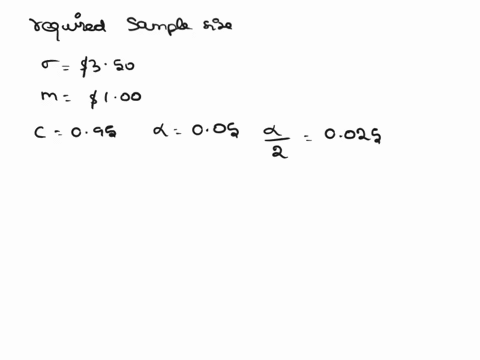 required Sample size
σ = $3.50
m = $1.00
C = 0.95 α = 0.05 α/2 = 0.025